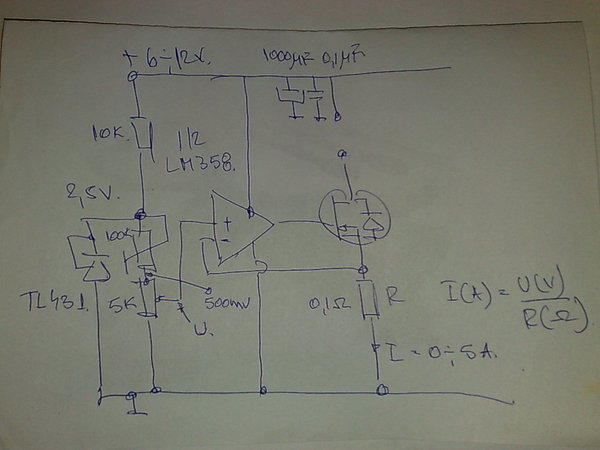 + 6÷12V.
1000µF 0,1µF
10K.
1/2
LM358.
2,5V.
100K
+
-
TL431
5K
500mV
U.
0,1Ω
R
I(A) = U(V)
R(Ω)
I = 0÷5A.